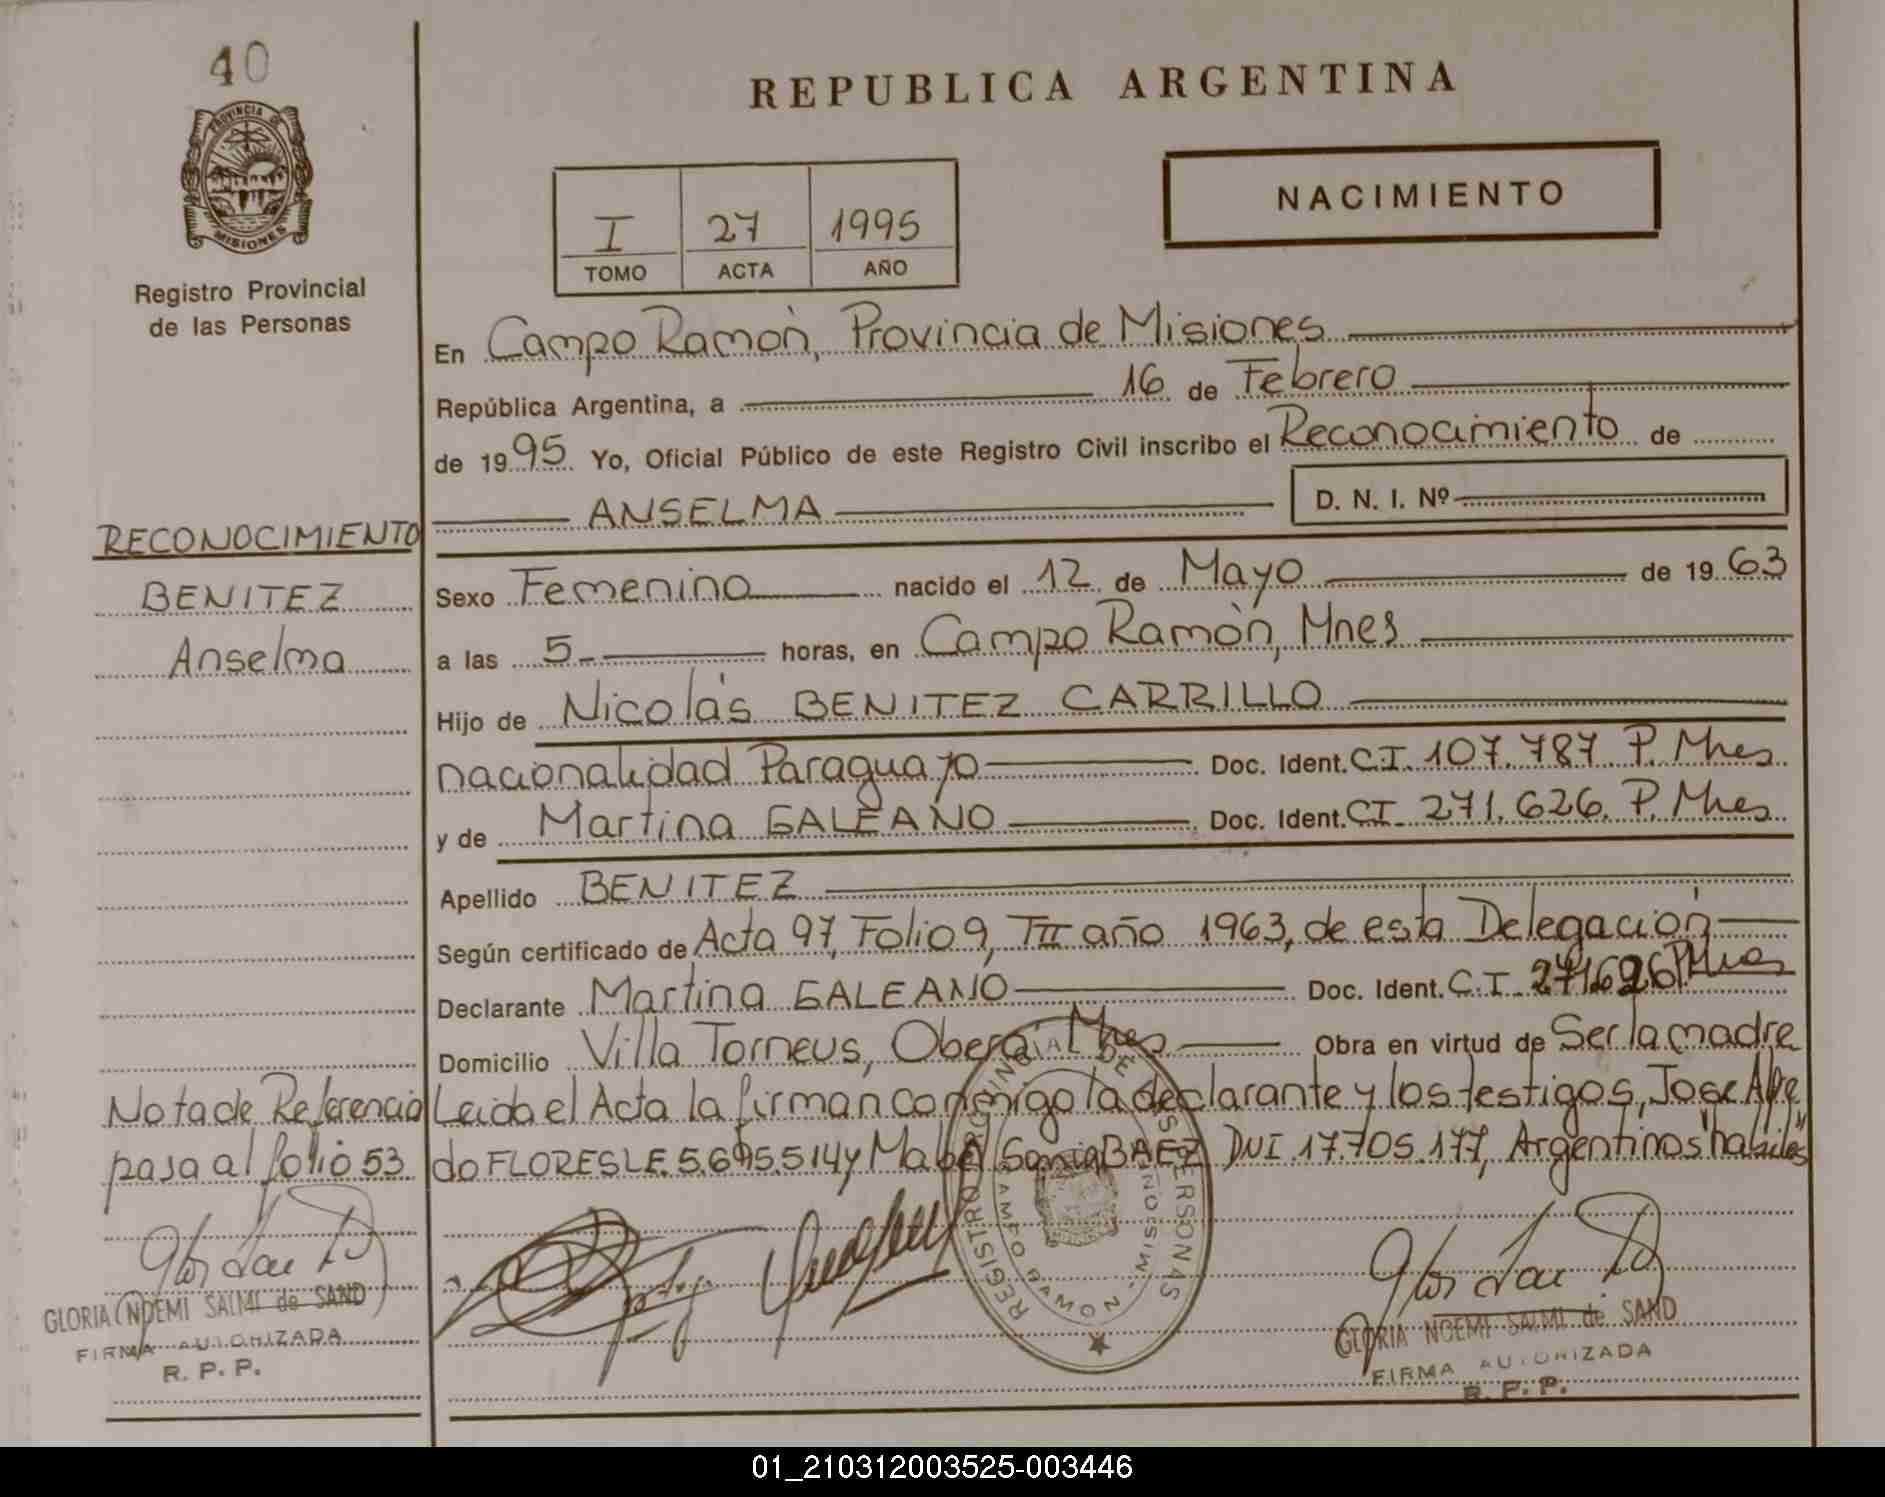 40
PROVINCIA DE
MISIONES
Registro Provincial
de las Personas
REPUBLICA ARGENTINA
I 27 1995
TOMO ACTA AÑO
NACIMIENTO
En Campo Ramòn, Provincia de Misiones
República Argentina, a 16 de Febrero
de 1995 Yo, Oficial Público de este Registro Civil inscribo el Reconocimiento de
ANSELMA D. N. I. Nº
RECONOCIMIENTO
BENITEZ
Anselma
Sexo Femenino nacido el 12 de Mayo de 1963
a las 5 horas, en Campo Ramòn, Mnes
Hijo de Nicolás BENITEZ CARRILLO
nacionalidad Paraguayo Doc. Ident. C.I. 107.787 P. Mnes
y de Martina GALEANO Doc. Ident. CI. 271.626. P. Mnes
Apellido BENITEZ
Según certificado de Acta 97, Folio 9, TII año 1963, de esta Delegación
Declarante Martina GALEANO Doc. Ident. C.I. 271626 P. Mnes
Domicilio Villa Torneus, Oberá, Mnes Obra en virtud de Ser la madre
Leida el Acta la firman conmigo la declarante y los testigos, Jose Alfre
do FLORES LE. 5.695.514 y Mabel Sonia BAEZ DNI. 17.705.177, Argentinos "habiles"
Nota de Referencia
pasa al folio 53
GLORIA NOEMI SALMI de SAND
FIRMA AUTORIZADA
R. P. P.
REGISTRO PROVINCIAL DE LAS PERSONAS
CAMPO RAMON - MISIONES
GLORIA NOEMI SALMI de SAND
FIRMA AUTORIZADA
R. P. P.
01_210312003525-003446